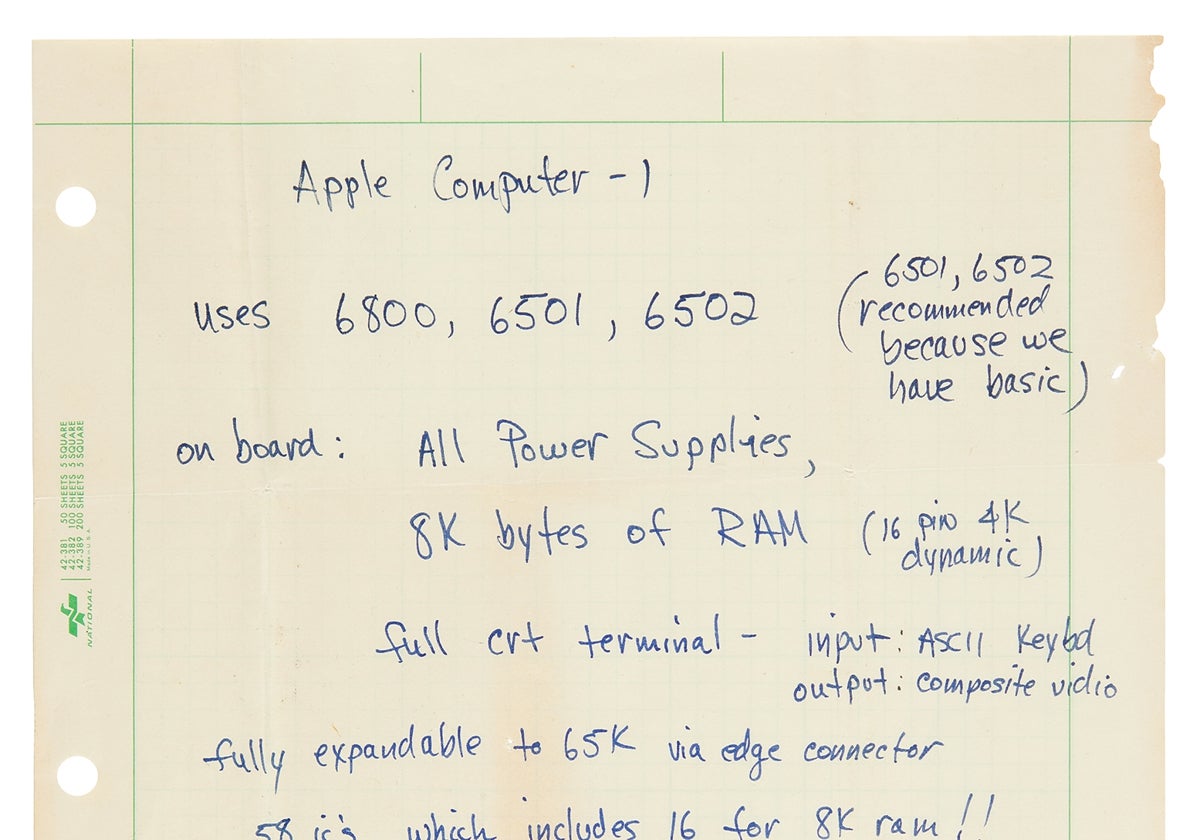 Apple Computer - 1
uses 6800, 6501, 6502 (6501, 6502
recommended
because we
have basic)
on board: All Power Supplies,
8K bytes of RAM (16 pin 4K
dynamic)
full crt terminal - input: ASCII Keybd
output: composite vidio
fully expandable to 65K via edge connector
58 ic's which includes 16 for 8K ram!!
42-381 50 SHEETS 5 SQUARE
42-382 100 SHEETS 5 SQUARE
42-389 200 SHEETS 5 SQUARE
Made in U.S.A.
NATIONAL